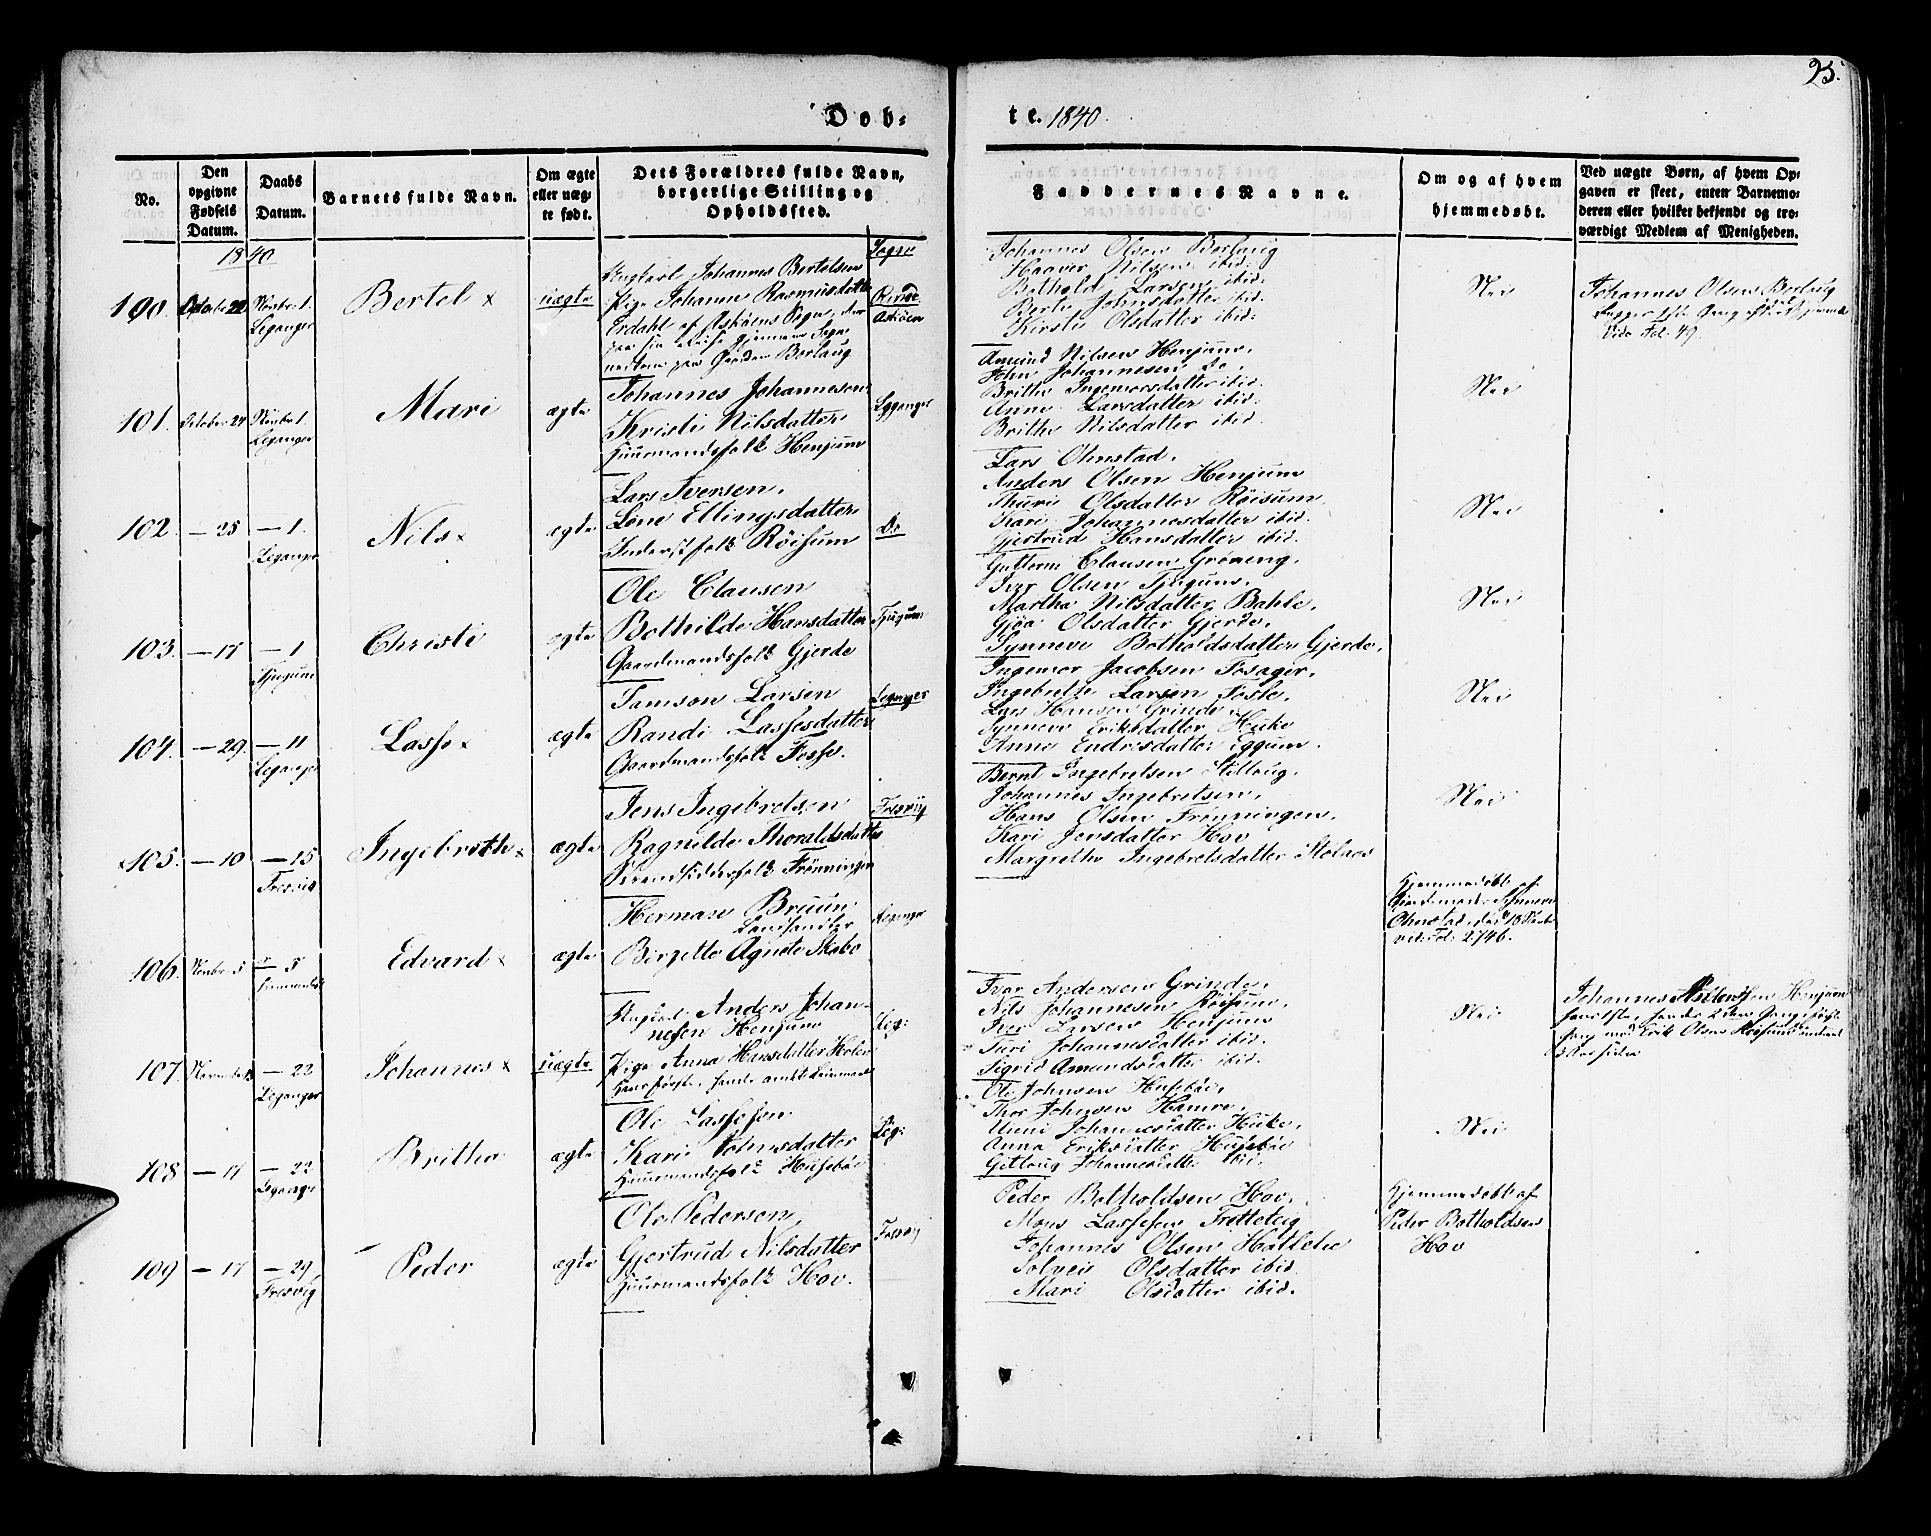 25.
Dob-
te. 1840.
No.
Den opgivne Fødsels Datum.
Daabs Datum.
Barnets fulde Navn.
Om ægte eller uæg- te født.
Dets Forældres fulde Navn, borgerlige Stilling og Opholdssted.
Faddernes Navne.
Om og af hvem hjemmedøbt.
Ved uægte Børn, af hvem Op- gaven er skeet, enten Barnemo- deren eller hvilket bekjendt og tro- værdigt Medlem af Menigheden.
1840
Sogne
100.
Novbr 1.
Leganger
Bertel x
uægte
Ungkarl Johannes Bertelsen
Pige Johanna Rasmusdatter
Askøen
Johannes Olsen Berlaug
Haaver Nilsen ibid:
Bothold Larsen ibid:
Berte Johnsdatter ibid:
Kirsti Olsdatter ibid:
Nei
Johannes Olsen Berlaug
Vide Fol. 49.
101.
October 24
Novbr 1.
Leganger
Mari
ægte
Johannes Johannesen
Kristi Nilsdatter
Huusmandsfolk Henjum
Leganger
Amund Nilsen Henjum,
John Johannesen do,
Brithe Ingemorsdatter ibid.
Anne Larsdatter ibid.
Brithe Nilsdatter ibid.
Nei
102.
— 25
— 1.
Leganger
Nils x
ægte
Lars Iversen,
Lene Ellingsdatter
Inderstfolk Röisum
Do
Lars Ohnstad,
Anders Olsen Henjum
Thuri Olsdatter Röisum,
Kari Johannesdatter ibid.
Gjertrud Hansdatter ibid.
Nei
103.
— 17
— 1
Tjugum
Christi
ægte
Ole Clausen
Bothilde Hansdatter
Gaardmandsfolk Gjerde
Tjugum
Guttorm Clausen Grøneng,
Iver Olsen Tjugum,
Martha Nilsdatter Bahle,
Gjøa Olsdatter Gjerde,
Synneve Botholdsdatter Gjerde,
Nei
104.
— 29.
— 11
Leganger
Lasse x
ægte
Tamson Larsen
Randi Lassesdatter
Gaardmandsfolk Fosse.
Leganger
Ingemor Jacobsen Fosager,
Ingebrikt Larsen Fosse,
Lars Hansen Grinde,
Synneve Eriksdatter Huke
Anne Endresdatter Eggum.
Nei
105.
— 10
— 15
Fresvig
Ingebreth x
ægte
Jens Ingebretsen
Ragnilde Thoraldsdatter
Strandsidderfolk Frönningen
Fresvig
Bernt Ingebretsen Stillaug,
Johannes Ingebretsen,
Hans Olsen Frenningen,
Kari Jensdatter Hov
Margrethe Ingebretsdatter
Nei
106.
Novbr 5
— 5
Edvard x
ægte
Herman Bruun,
Landhandler
Birgitte Agnete Skabo
Leganger
Hjemmedøbt af
Jordemoder Synneve
Ohnstad,
107.
— 22
Leganger
Johannes x
uægte
Ungkarl Anders Johan-
nesen Henjum
Pige Anna Hansdatter Holen
Lig:
Ivar Andersen Grinde,
Nils Johannesen Röisum,
Iver Larsen Henjum
Turi Johannesdatter ibid.
Sigrid Amundsdatter ibid.
Nei
108
— 17
— 22
Leganger
Britha
ægte
Ole Lassesen
Kari Johnsdatter
Huusmandsfolk Husebøe
Lig:
Ole Johnsen Husebøe,
Thor Johnsen Hamre,
Unni Johannesdatter Huke,
Anna Eriksdatter Husebøe
Gitlaug Johannesdatter ibid.
Nei
109
— 17
— 29
Fresvig
Peder
ægte
Ole Pedersen,
Gjertrud Nilsdatter
Huusmandsfolk Hov.
Fresvig
Peder Botholdsen Hov,
Mons Lassesen Fretteteig
Johannes Olsen Hatlelie
Solveis Olsdatter ibid.
Mari Olsdatter ibid.
Hjemmedøbt af
Peder Botholdsen
Hov